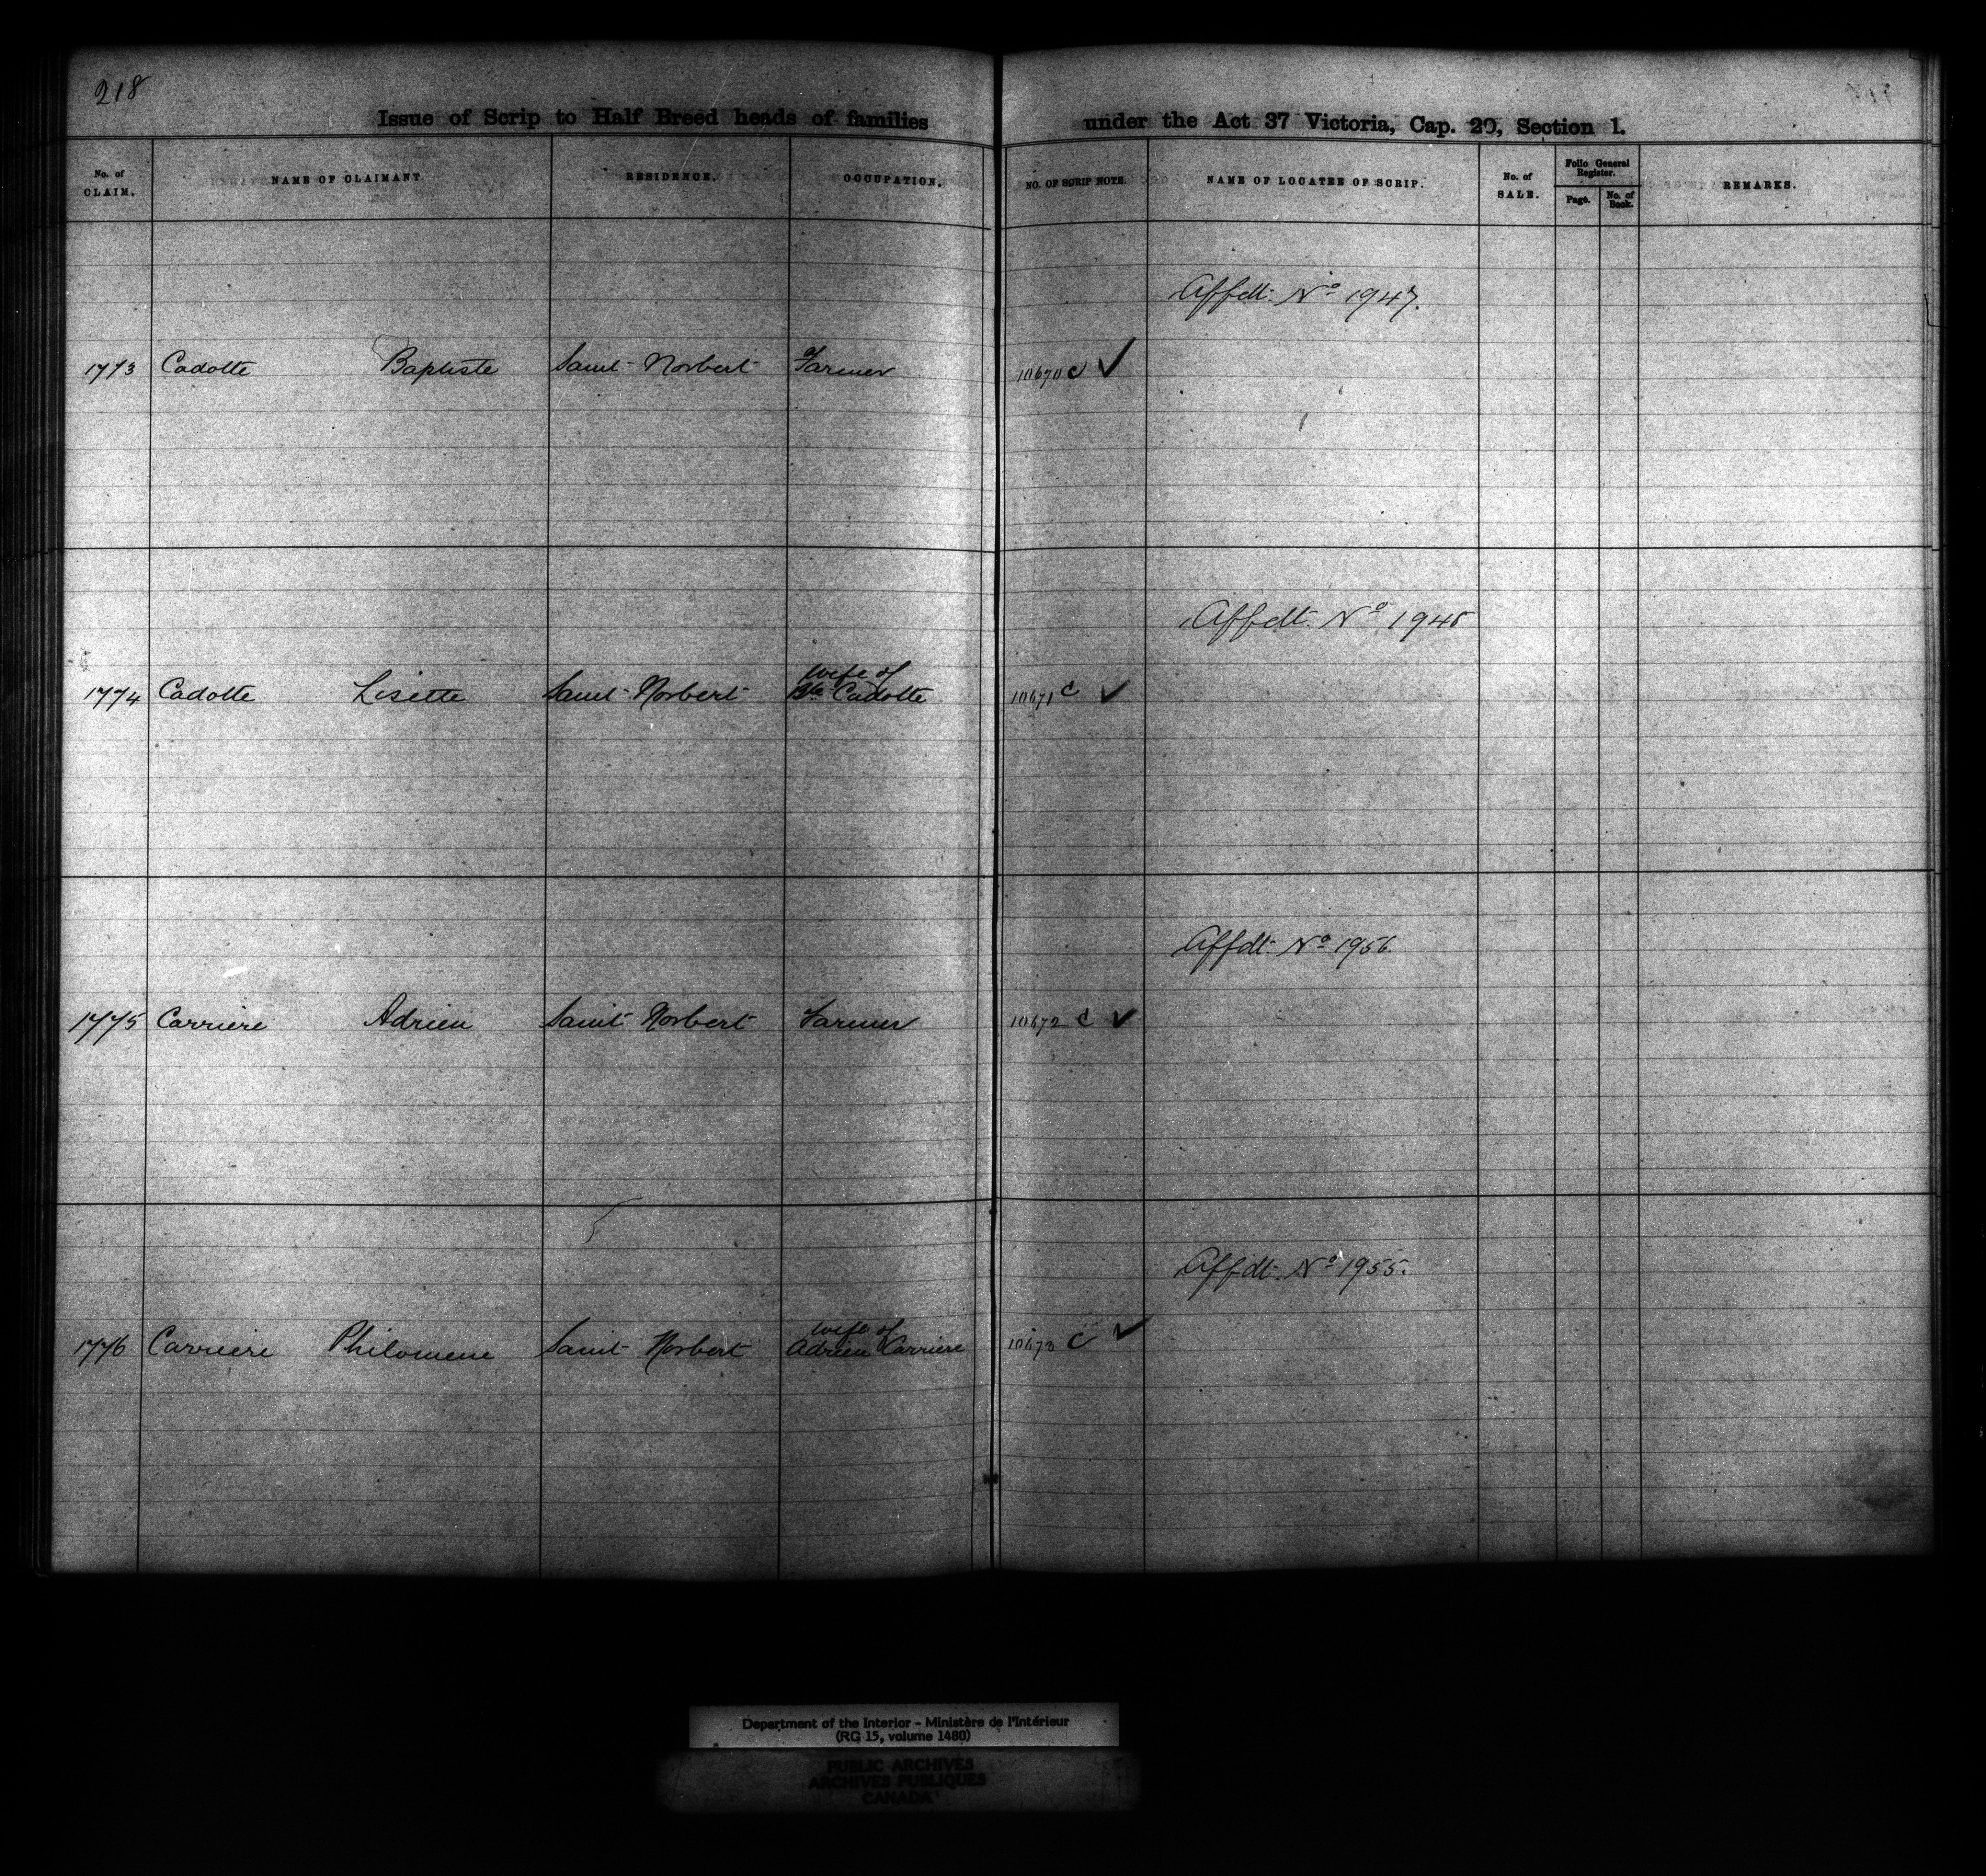 218
Issue of Scrip to Half Breed heads of families under the Act 37 Victoria, Cap. 20, Section 1.
No. of CLAIM. NAME OF CLAIMANT. RESIDENCE. OCCUPATION. NO. OF SCRIP NOTE. NAME OF LOCATEE OF SCRIP. No. of SALE. Folio General Register. Page. No. of Book. REMARKS.
Affdt. No 1947.
1773 Cadotte Baptiste Saint-Norbert Farmer 10670 c ✓
Affdt. No 1948
wife of
1774 Cadotte Lisette Saint-Norbert Bte Cadotte 10671 c ✓
Affdt. No 1956.
1775 Carriere Adrien Saint Norbert Farmer 10672 c ✓
Affdt. No 1955.
wife of
1776 Carriere Philomene Saint Norbert Adrien Carriere 10673 c ✓
Department of the Interior - Ministère de l'Intérieur
(RG 15, volume 1480)
PUBLIC ARCHIVES
ARCHIVES PUBLIQUES
CANADA